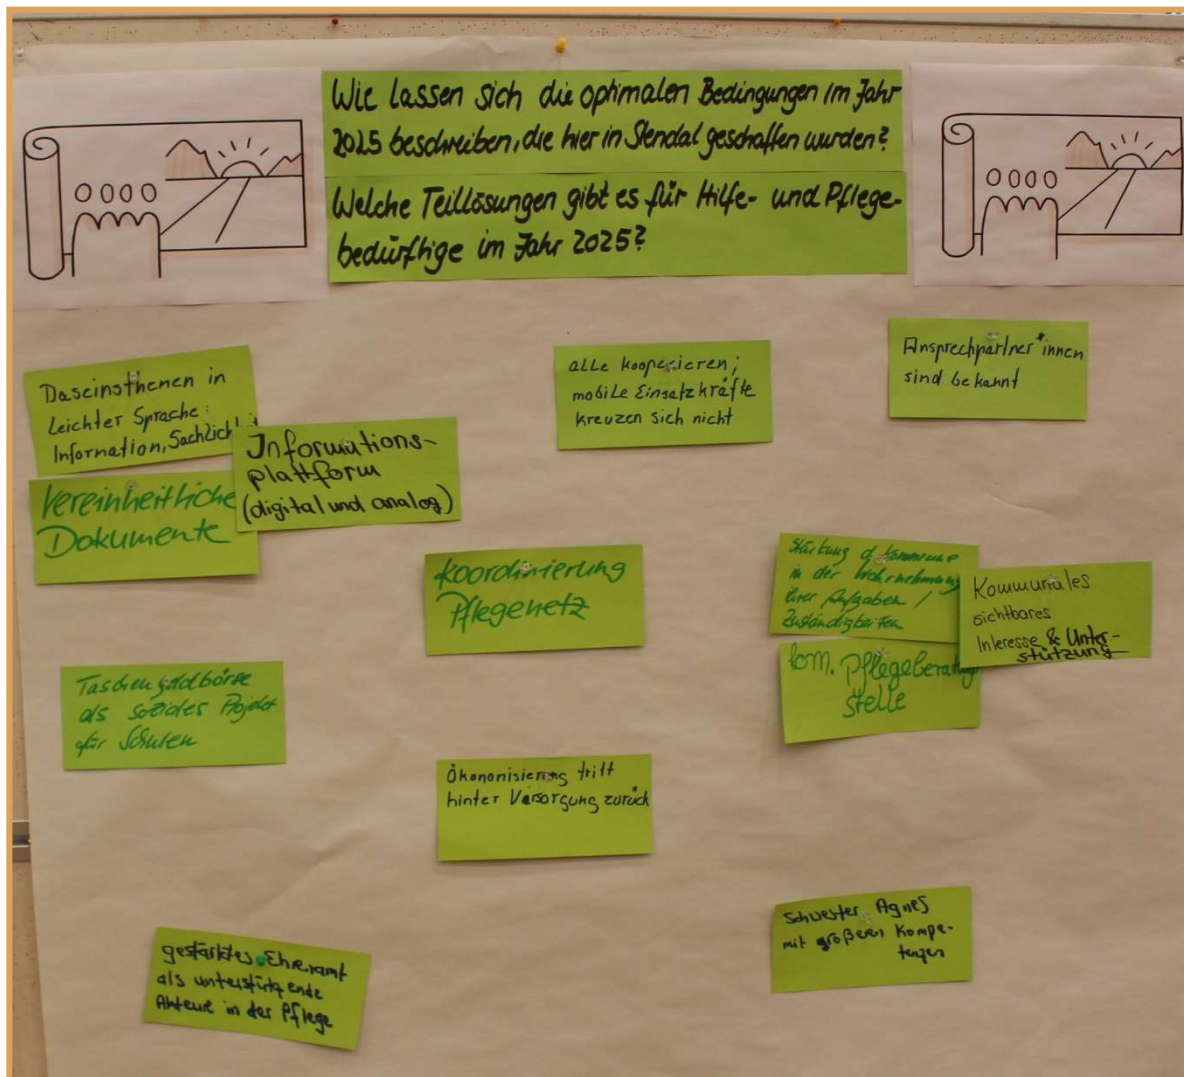 Wie lassen sich die optimalen Bedingungen im Jahr
2025 beschreiben, die hier in Stendal geschaffen wurden?
Welche Teillösungen gibt es für Hilfe- und Pflege-
bedürftige im Jahr 2025?
Daseinsthemen in
Leichter Sprache:
Information, Sachlichkeit
Informations-
plattform
(digital und analog)
Vereinheitliche
Dokumente
alle kooperieren;
mobile Einsatzkräfte
kreuzen sich nicht
Ansprechpartner*innen
sind bekannt
Koordinierung
Pflegenetz
Stärkung d. Kommune
in der Wahrnehmung
ihrer Aufgaben /
Zuständigkeiten
Kommunales
sichtbares
Interesse & Unter-
stützung
kom. Pflegeberatung
stelle
Taschengeldbörse
als soziales Projekt
für Schulen
Ökonomisierung tritt
hinter Versorgung zurück
Schwester Agnes
mit größeren Kompe-
tenzen
gestärktes Ehrenamt
als unterstützende
Akteure in der Pflege